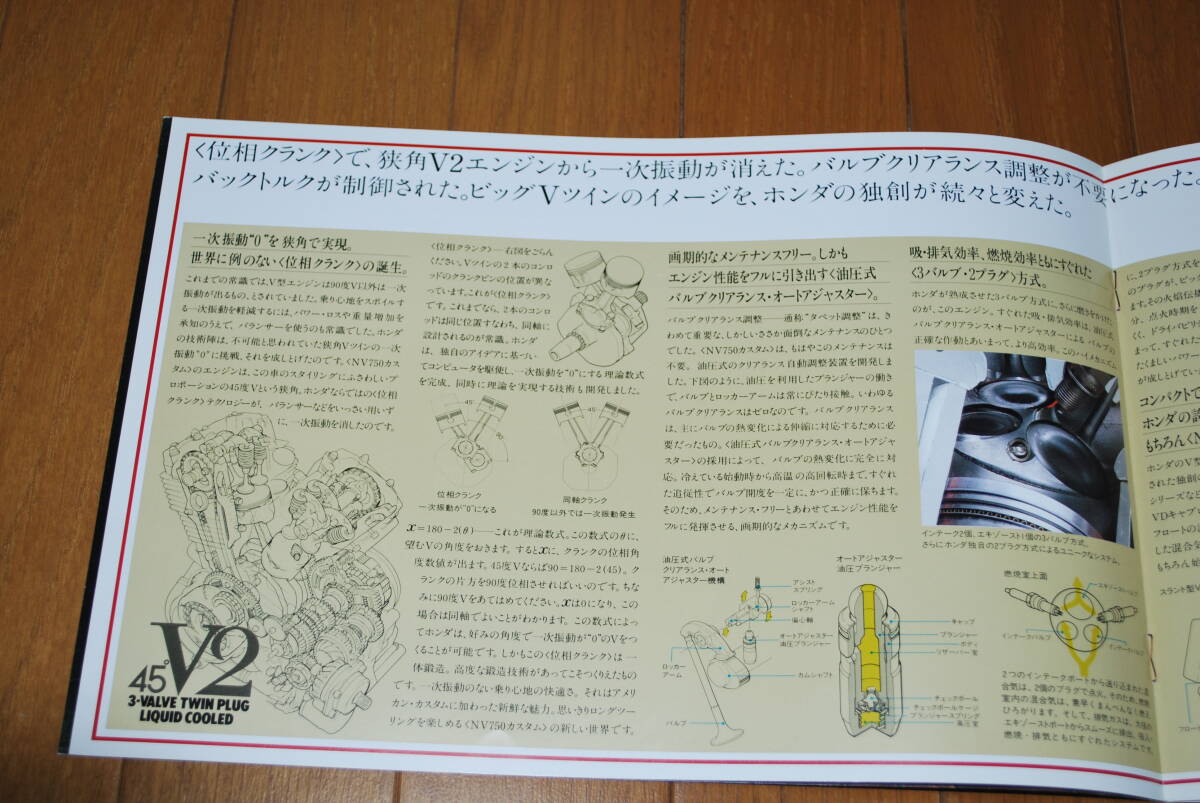 〈位相クランク〉で、狭角V2エンジンから一次振動が消えた。バルブクリアランス調整が不要になった。
バックトルクが制御された。ビッグVツインのイメージを、ホンダの独創が続々と変えた。
一次振動“0”を狭角で実現。
世界に例のない〈位相クランク〉の誕生。
これまでの常識では、V型エンジンは90度V以外は一次
振動が出るもの、とされていました。乗り心地をスポイルす
る一次振動を軽減するには、パワー・ロスや重量増加を
承知のうえで、バランサーを使うのも常識でした。ホンダ
の技術陣は、不可能と思われていた狭角Vツインの一次
振動“0”に挑戦、それを成しとげたのです。〈NV750カス
タム〉のエンジンは、この車のスタイリングにふさわしいプ
ロポーションの45度Vという狭角。ホンダならではの〈位相
クランク〉テクノロジーが、バランサーなどをいっさい用いず
に、一次振動を消したのです。
45°V2
3-VALVE TWIN PLUG
LIQUID COOLED
〈位相クランク〉―右図をごらん
ください。Vツインの2本のコンロ
ッドのクランクピンの位置が異な
っています。これが〈位相クランク〉
です。これまでなら、2本のコンロ
ッドは同じ位置すなわち、同軸に
設計されるのが常識。ホンダ
は、独自のアイデアに基づい
てコンピュータを駆使し、一次振動を“0”にする理論数式
を完成。同時に理論を実現する技術も開発しました。
45°
90°
45°
位相クランク
一次振動が“0”になる
同軸クランク
90度以外では一次振動発生
x=180−2(θ)――これが理論数式。この数式のθに、
望むVの角度をおきます。するとxに、クランクの位相角
度数値が出ます。45度Vならば90=180−2(45)。ク
ランクの片方を90度位相させればいいのです。ちな
みに90度Vをあてはめてください。xは0になり、この
場合は同軸でよいことがわかります。この数式によっ
てホンダは、好みの角度で一次振動が“0”のVをつ
くることが可能です。しかもこの〈位相クランク〉は一
体鍛造。高度な鍛造技術があってこそつくりえたもの
です。一次振動のない乗り心地の快適さ。それはアメリ
カン・カスタムに加わった新鮮な魅力。思いきりロングツー
リングを楽しめる〈NV750カスタム〉の新しい世界です。
画期的なメンテナンスフリー。しかも
エンジン性能をフルに引き出す〈油圧式
バルブクリアランス・オートアジャスター〉。
バルブクリアランス調整――通称“タペット調整”は、き
わめて重要な、しかしいささか面倒なメンテナンスのひとつ
でした。〈NV750カスタム〉は、もはやこのメンテナンスは
不要。油圧式のクリアランス自動調整装置を開発しま
した。下図のように、油圧を利用したプランジャーの働き
で、バルブとロッカーアームは常にぴたり接触。いわゆる
バルブクリアランスはゼロなのです。バルブクリアランス
は、主にバルブの熱変化による伸縮に対応するために必
要だったもの。〈油圧式バルブクリアランス・オートアジャ
スター〉の採用によって、バルブの熱変化に完全に対
応。冷えている始動時から高温の高回転時まで、すぐれ
た追従性でバルブ開度を一定に、かつ正確に保ちます。
そのため、メンテナンス・フリーとあわせてエンジン性能を
フルに発揮させる、画期的なメカニズムです。
油圧式バルブ
クリアランス・オート
アジャスター機構
アシスト
スプリング
ロッカーアーム
シャフト
偏心軸
オートアジャスター
油圧プランジャー
ロッカー
アーム
カムシャフト
バルブ
オートアジャスター
油圧プランジャー
キャップ
プランジャー
ボディ
リザーバー室
チェックボール
チェックボールケージ
プランジャースプリング
高圧室
吸・排気効率、燃焼効率ともにすぐれた
〈3バルブ・2プラグ〉方式。
ホンダが熟成させた3バルブ方式に、さらに磨きをかけた
のが、このエンジン。すぐれた吸・排気効率は、油圧式
バルブクリアランス・オートアジャスターによる バルブの
正確な作動とあいまって、より高効率。このハイメカニズム
インテーク2個、エキゾースト1個の3バルブ方式。
さらにホンダ独自の2プラグ方式によるユニークなシステム。
燃焼室上面
エキゾーストバルブ
インテークバルブ
インテークバルブ
2つのインテークポートから送り込まれた混
合気は、2個のプラグで点火。そのため、燃焼
室内の混合気は、素早くまんべんなく燃え
ひろがります。そして、排気ガスは、大径の
エキゾーストポートからスムーズに排出。吸入・
燃焼・排気ともにすぐれたシステムです。
に、2プラグ方式を
のプラグが、ビッグ
ます。その火炎伝播
分、点火時期を
く、ドライバビリテ
まって、すぐれた
たくましいパワー
が成しとげてい
コンパクトで
ホンダの誇
もちろん〈N
ホンダのV型
された独創の
シリーズなど
VDキャブ
フロートの
した混合気
もちろん始
スラント型
フロー